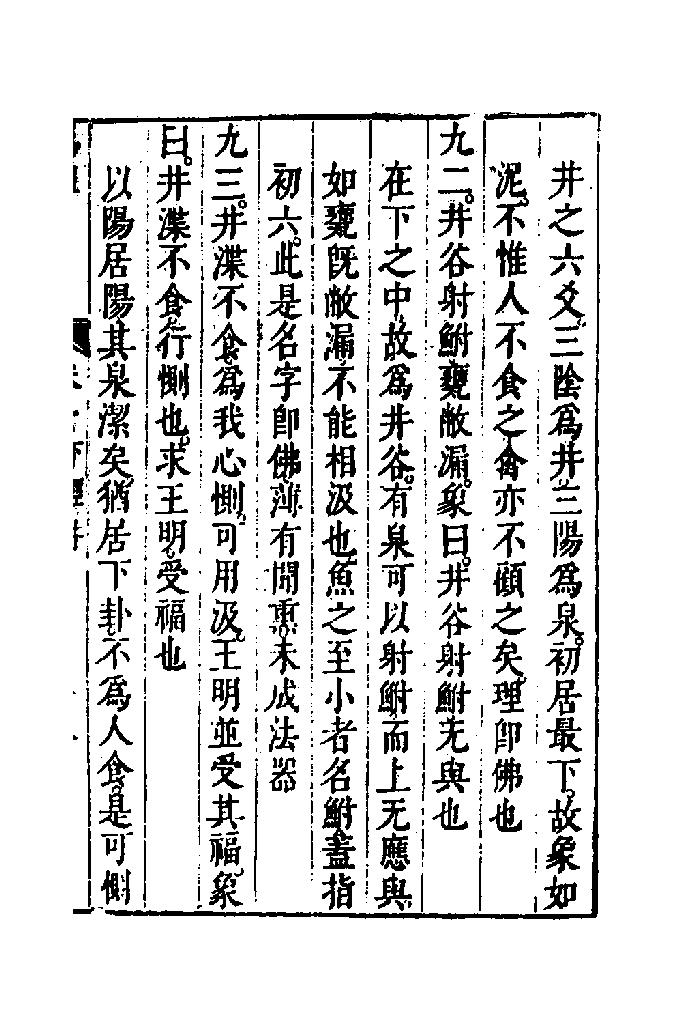 井之六爻。三陰為井。三陽為泉。初居最下。故象如
泥。不惟人不食之。禽亦不顧之矣。理卽佛也
九二。井谷射鮒。甕敝漏。象曰。井谷射鮒。无與也
在下之中。故為井谷。有泉可以射鮒。而上无應與。
如甕旣敝漏。不能相汲也。魚之至小者名鮒。蓋指
初六。此是名字卽佛。薄有聞熏。未成法器
九三。井渫不食。為我心惻。可用汲。王明並受其福。象
曰。井渫不食。行惻也。求王明。受福也
以陽居陽。其泉潔矣。猶居下卦。不為人食。是可惻